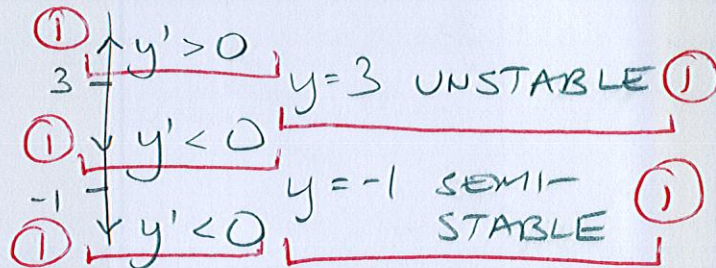 ① y' > 0
3
y = 3 UNSTABLE ①
① y' < 0
-1
y = -1 SEMI-
STABLE ①
① y' < 0